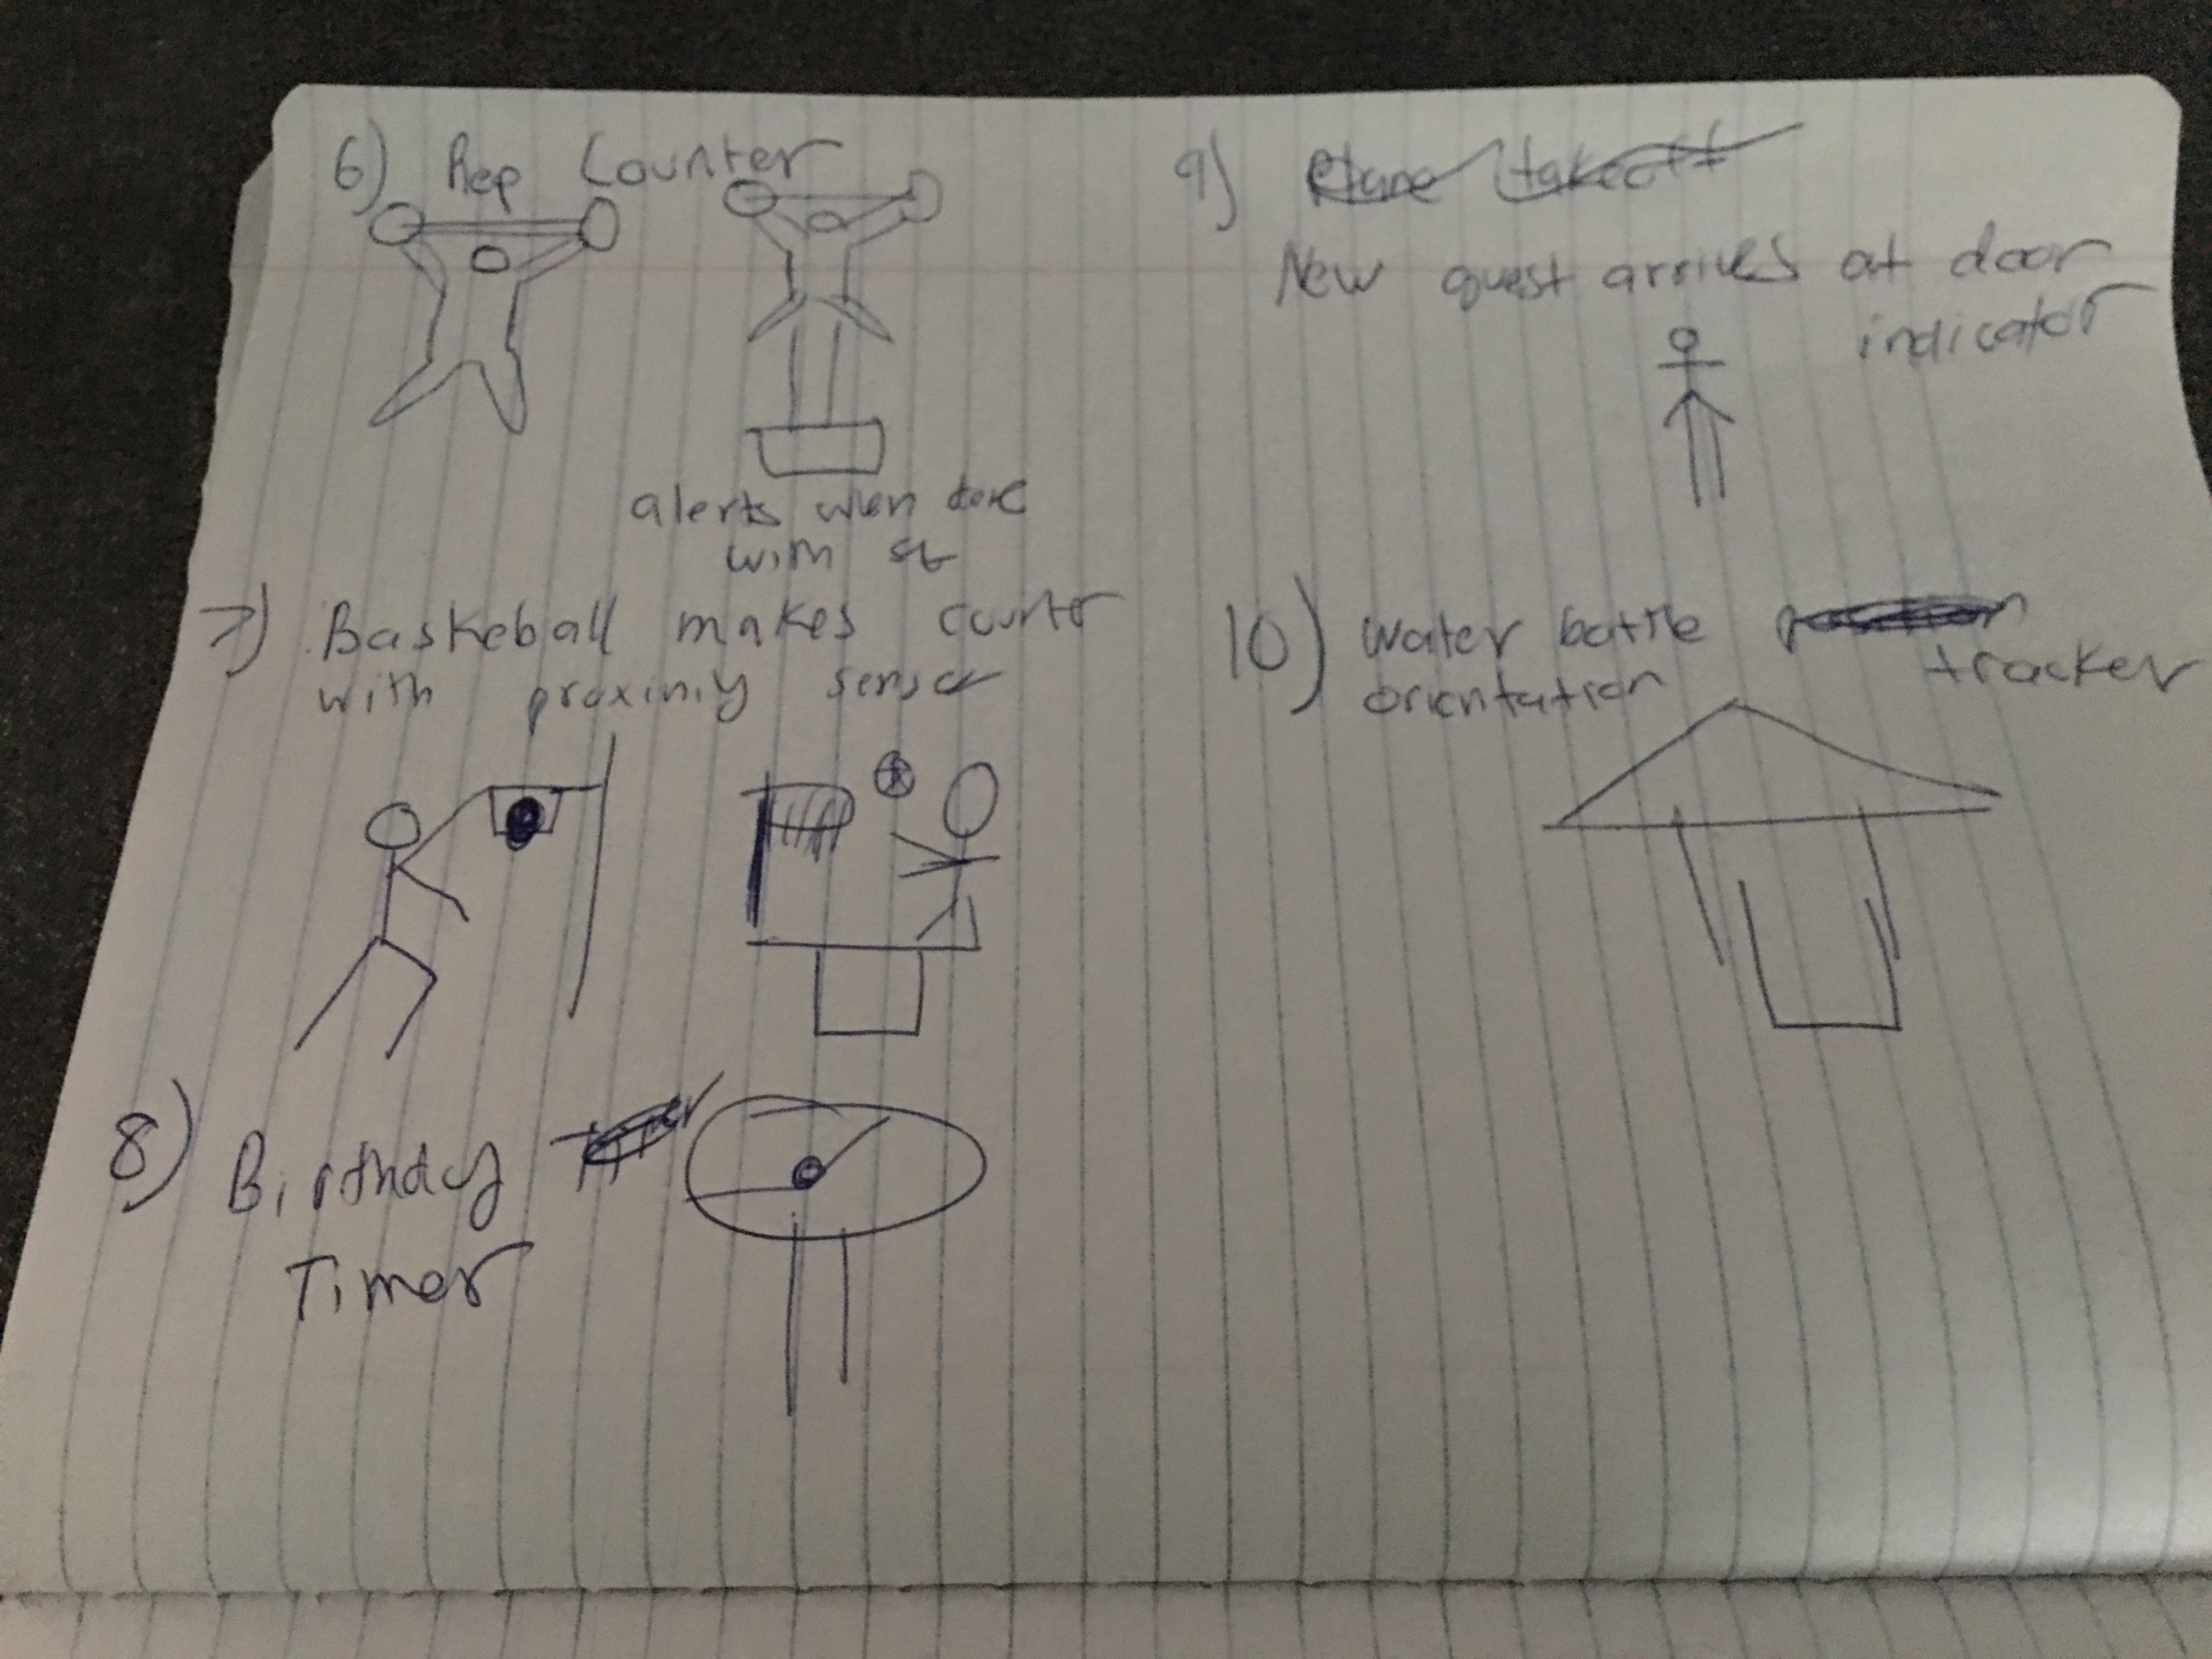 6) Rep Counter
alerts when done
with
7) Basketball makes counter
with proximity sensor
8) Birthday
Timer
9)
New guest arrives at door
indicator
10) Water bottle
orientation tracker